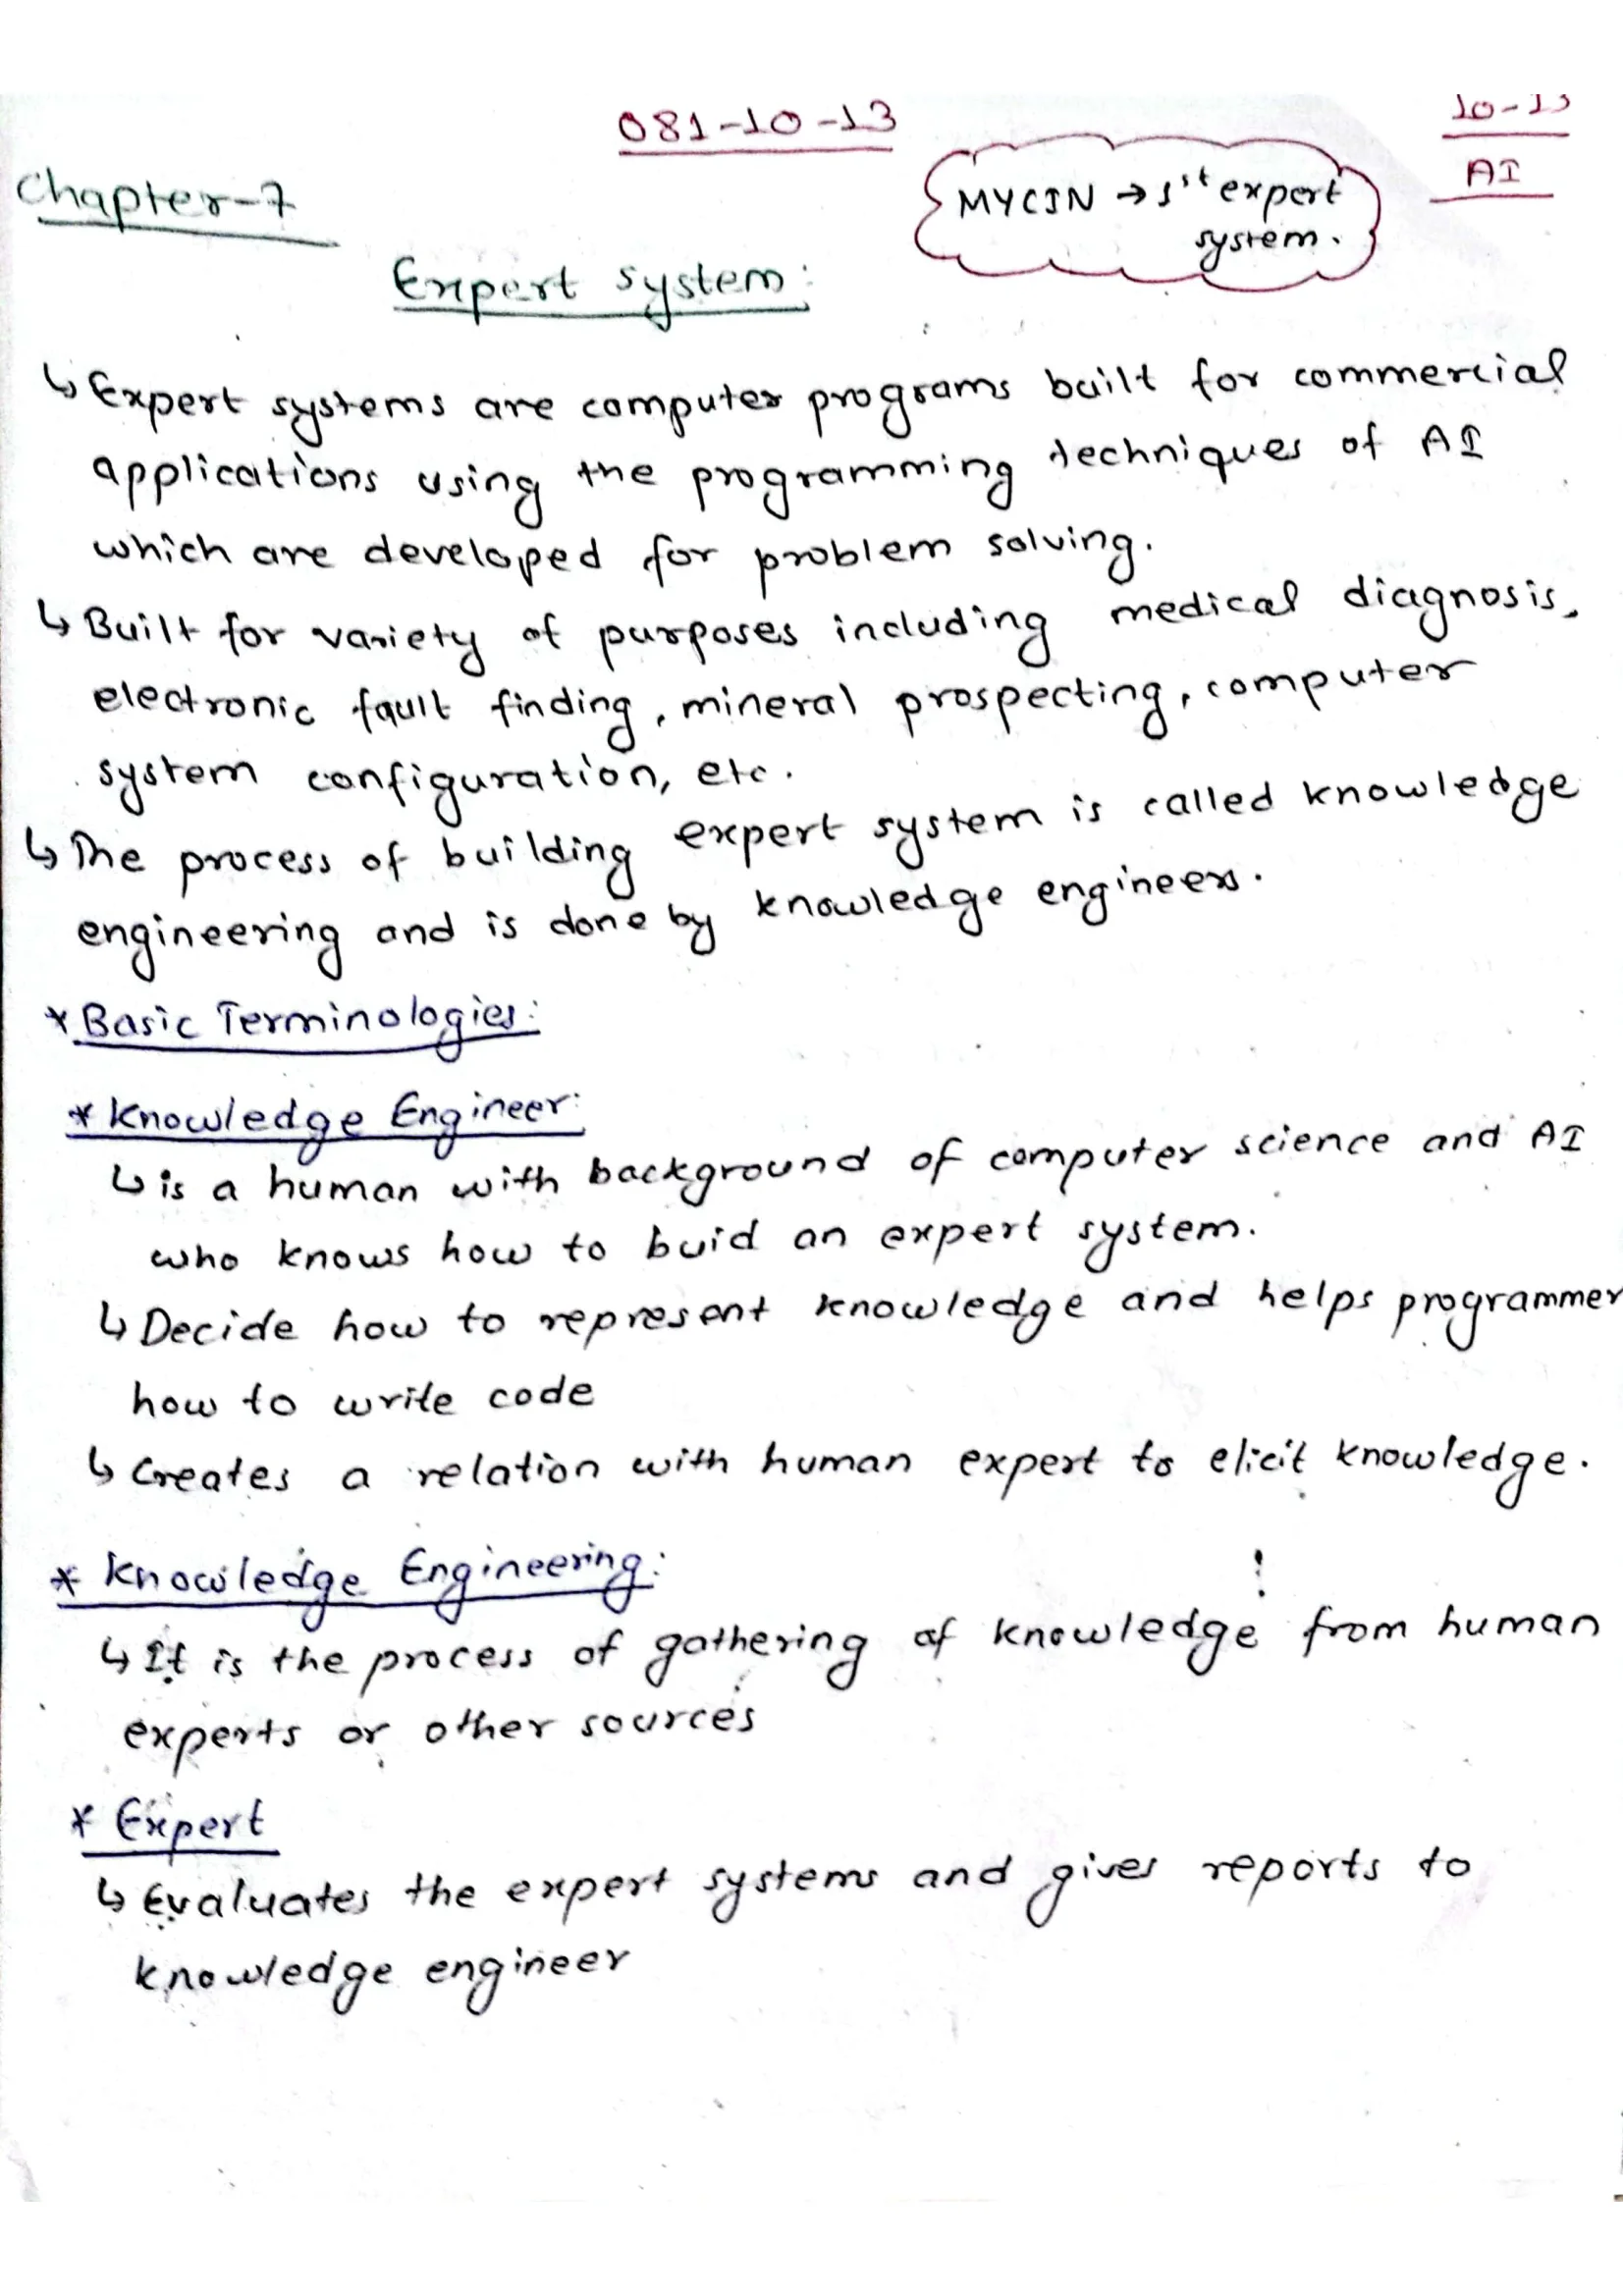 081-10-13
10-13
AI
Chapter-7
MYCIN → 1st expert
system.
Expert system:
↳ Expert systems are computer programs built for commercial
applications using the programming techniques of AI
which are developed for problem solving.
↳ Built for variety of purposes including medical diagnosis,
electronic fault finding, mineral prospecting, computer
system configuration, etc.
↳ The process of building expert system is called knowledge
engineering and is done by knowledge engineers.
* Basic Terminologies:
* Knowledge Engineer:
↳ is a human with background of computer science and AI
who knows how to buid an expert system.
↳ Decide how to represent knowledge and helps programmer
how to write code
↳ Creates a relation with human expert to elicit knowledge.
* Knowledge Engineering:
↳ It is the process of gathering of knowledge from human
experts or other sources
* Expert
↳ Evaluates the expert systems and gives reports to
knowledge engineer